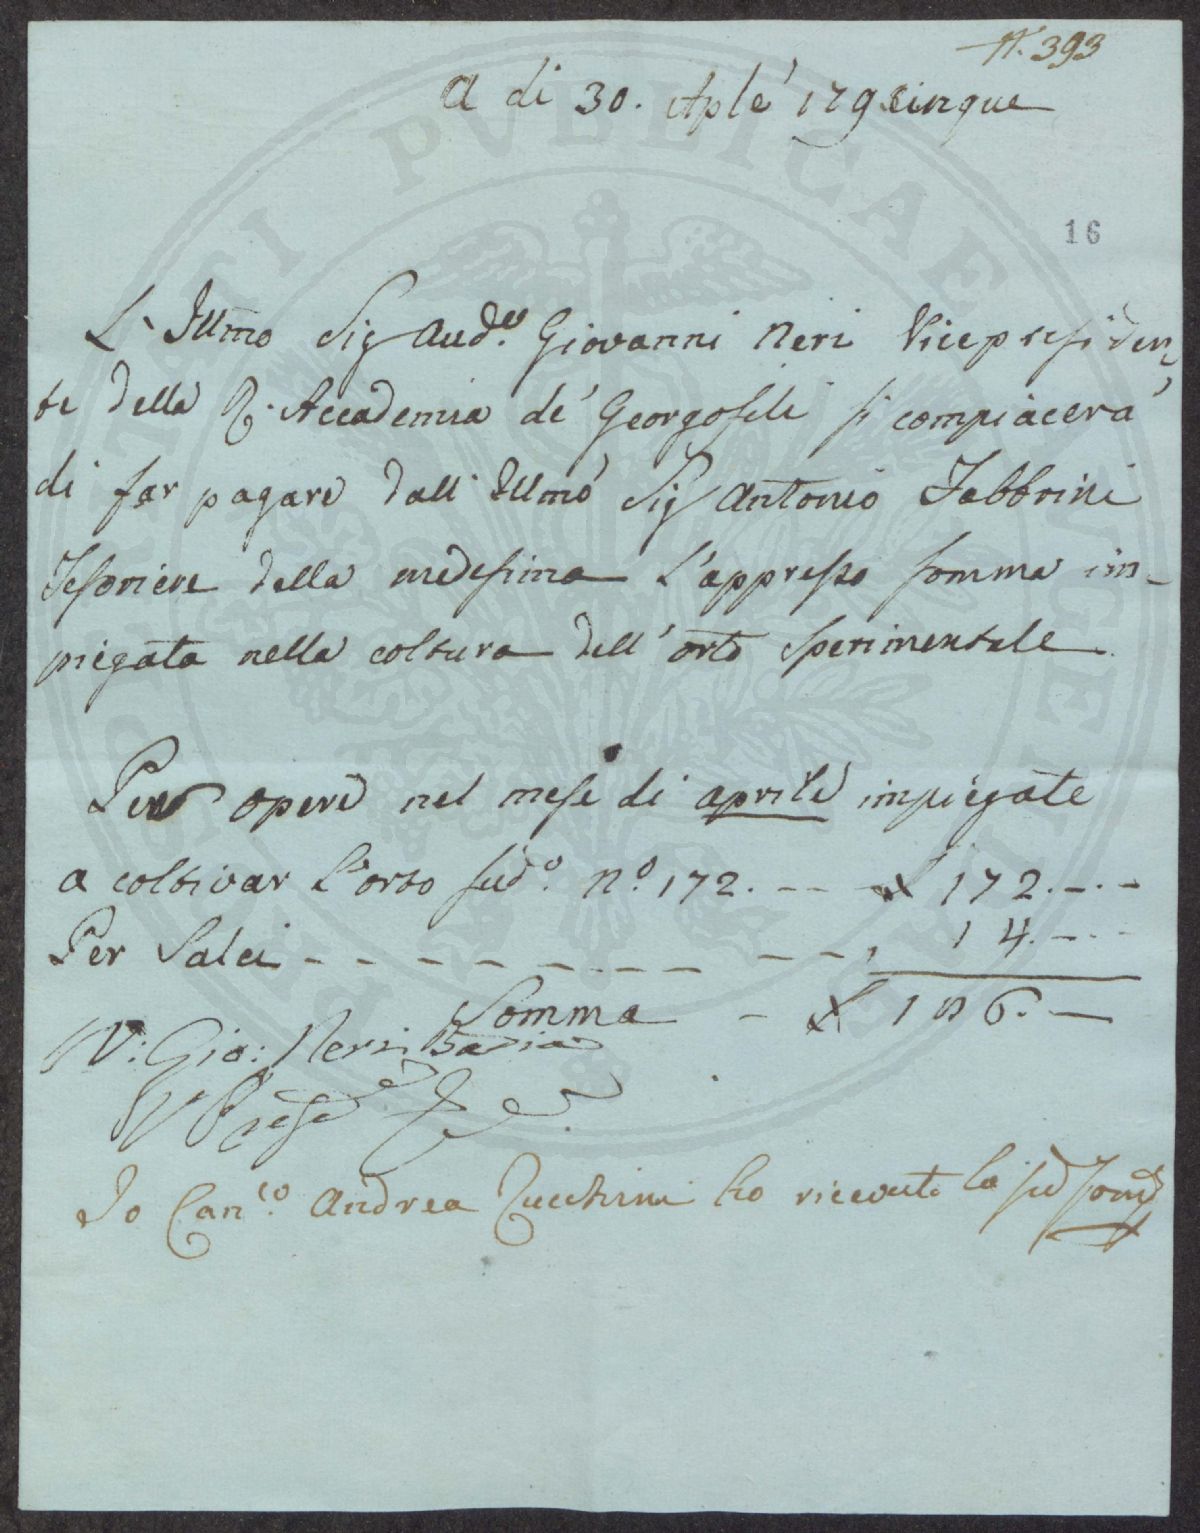 N. 393
A di 30. Aple 179cinque
16
L'Illmo Sig Aud.re Giovanni Neri Vicepresiden-
te della R. Accademia de' Georgofili si compiacerà
di far pagare dall' Illmo Sig Antonio Fabbrini
Tesoriere della medesima l'appresso somma im-
piegata nella coltura dell' orto sperimentale
Per opere nel mese di aprile impiegate
a coltivar l'orto sud.o n.o 172. - - £ 172.-.-
Per Salci - - - - - - - - - - - 14.-.-
Somma - £ 186.-
V: Gio: Neri Badia
V Prese
Io Can.co Andrea Zucchini ho ricevuto la sud som
PVBLICAE